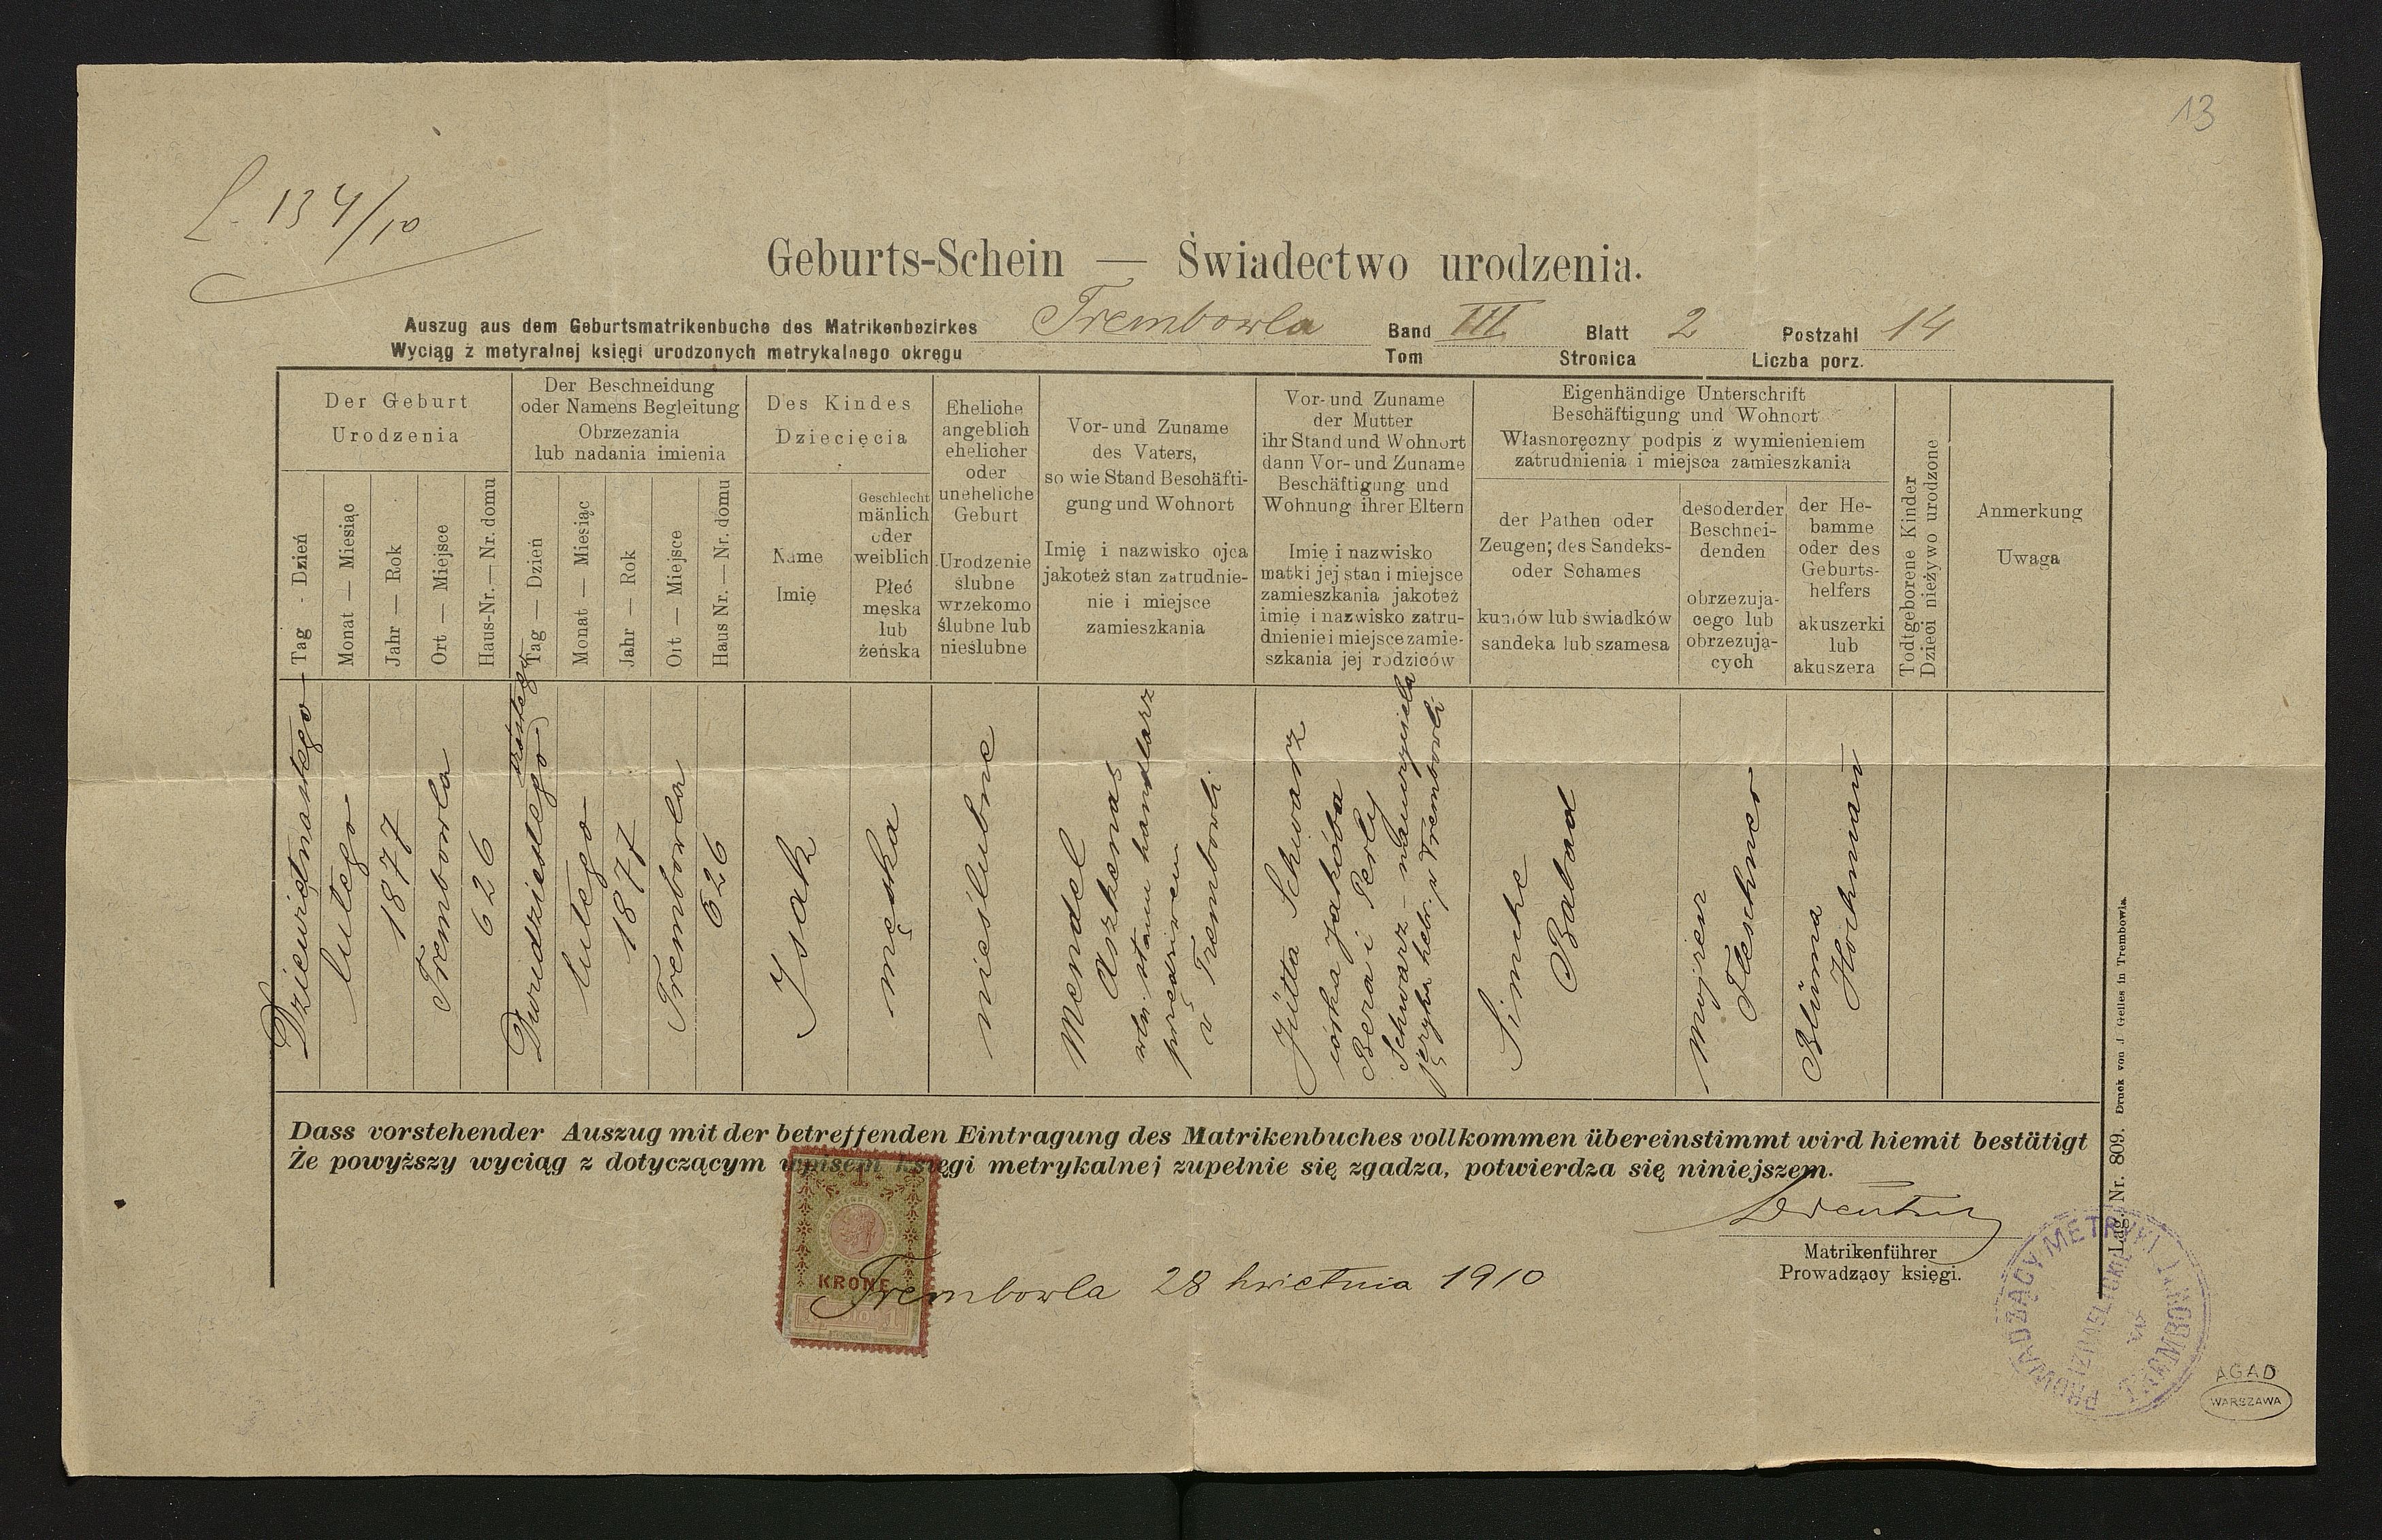 13
L. 134/10
Geburts-Schein — Świadectwo urodzenia.
Auszug aus dem Geburtsmatrikenbuche des Matrikenbezirkes Trembowla Band III Blatt 2 Postzahl 14
Wyciąg z metyralnej księgi urodzonych metrykalnego okręgu Tom Stronica Liczba porz.
Der Geburt
Urodzenia
Tag - Dzień
Monat — Miesiąc
Jahr — Rok
Ort — Miejsce
Haus-Nr.—Nr. domu
Der Beschneidung
oder Namens Begleitung
Obrzezania
lub nadania imienia
Tag — Dzień
Monat — Miesiąc
Jahr — Rok
Ort — Miejsce
Haus Nr.—Nr. domu
Des Kindes
Dziecięcia
Name
Imię
Geschlecht
mänlich
oder
weiblich
Płeć
męska
lub
żeńska
Eheliche
angeblich
ehelicher
oder
uneheliche
Geburt
Urodzenie
ślubne
wrzekomo
ślubne lub
nieślubne
Vor- und Zuname
des Vaters,
so wie Stand Beschäfti-
gung und Wohnort
Imię i nazwisko ojca
jakoteż stan zatrudnie-
nie i miejsce
zamieszkania
Vor- und Zuname
der Mutter
ihr Stand und Wohnort
dann Vor- und Zuname
Beschäftigung und
Wohnung ihrer Eltern
Imię i nazwisko
matki jej stan i miejsce
zamieszkania jakoteż
imię i nazwisko zatru-
dnienie i miejsce zamie-
szkania jej rodziców
Eigenhändige Unterschrift
Beschäftigung und Wohnort
Własnoręczny podpis z wymienieniem
zatrudnienia i miejsca zamieszkania
der Pathen oder
Zeugen; des Sandeks-
oder Schames
kumów lub świadków
sandeka lub szamesa
des oder der
Beschnei-
denden
obrzezują-
cego lub
obrzezują-
cych
der He-
bamme
oder des
Geburts-
helfers
akuszerki
lub
akuszera
Todtgeborene Kinder
Dzieci nieżywo urodzone
Anmerkung
Uwaga
Dziewiętnastego
lutego
1877
Trembowla
626
Dwudziestego szóstego
lutego
1877
Trembowla
626
Isak
męska
nieślubne
Mendel
Aszkenas
stanu handlarz
w Trembowli
Jütta Schwarz
córka Jakóba
Bera i Perly
Schwarz - nauczyciela
języka hebr. w Trembowli
Simche
Babad
Mojżesz
Fleschner
Blüma
Hochman
Dass vorstehender Auszug mit der betreffenden Eintragung des Matrikenbuches vollkommen übereinstimmt wird hiemit bestätigt
Że powyższy wyciąg z dotyczącym wpisem księgi metrykalnej zupełnie się zgadza, potwierdza się niniejszem.
1
KRONE
Trembowla 28 kwietnia 1910
Matrikenführer
Prowadzący księgi.
Lag. Nr. 809. Druck von J Gelles in Trembowla.
PROWADZĄCY METRYKI IZRAELICKIE w TREMBOWLI
AGAD
WARSZAWA